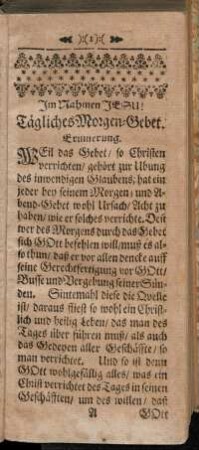 (1)
Im Nahmen JESU!
Tägliches Morgen-Gebet.
Erinnerung.
WEil das Gebet/ so Christen
verrichten/ gehört zur Ubung
des inwendigen Glaubens, hat ein
jeder bey seinem Morgen- und A-
bend-Gebet wohl Ursach/ Acht zu
haben/ wie er solches verrichte. Deñ
wer des Morgens durch das Gebet
sich GOtt befehlen will/ muß es al-
so thun/ daß er vor allen dencke auff
seine Gerechtfertigung vor GOtt/
Busse und Vergebung seiner Sün-
den. Sintemahl diese die Qvelle
ist/ daraus fliest so wohl ein Christ-
lich und heilig Leben/ das man des
Tages über führen muß/ als auch
das Gedeyen aller Geschäffte/ so
man verrichtet. Und so ist denn
GOtt wohlgefällig alles/ was ein
Christ verrichtet des Tages in seinen
Geschäfften/ um des willen/ daß
A GOtt